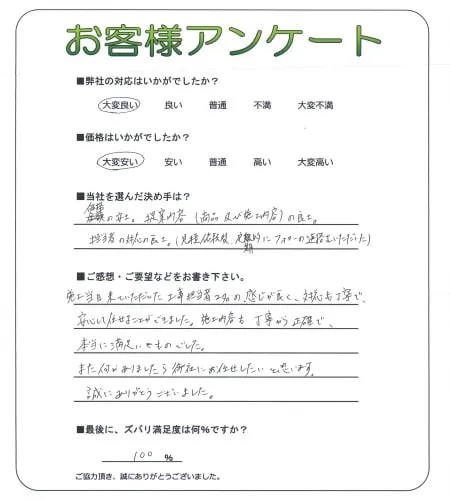 お客様アンケート
■弊社の対応はいかがでしたか？
大変良い 良い 普通 不満 大変不満
■価格はいかがでしたか？
大変安い 安い 普通 高い 大変高い
■当社を選んだ決め手は？
の安さ。提案内容（商品及び施工内容）の良さ。
担当者の対応の良さ。（見積依頼後、定期的にフォローの連絡をいただいた）
■ご感想・ご要望などをお書き下さい。
施工当日来ていただいた工事担当者2名の感じが良く、対応も丁寧で、
安心して任せることができました。施工内容も丁寧かつ正確で、
本当に満足いくものでした。
また何かありましたら御社にお任せしたいと思います。
誠にありがとうございました。
■最後に、ズバリ満足度は何％ですか？
100 ％
ご協力頂き、誠にありがとうございました。